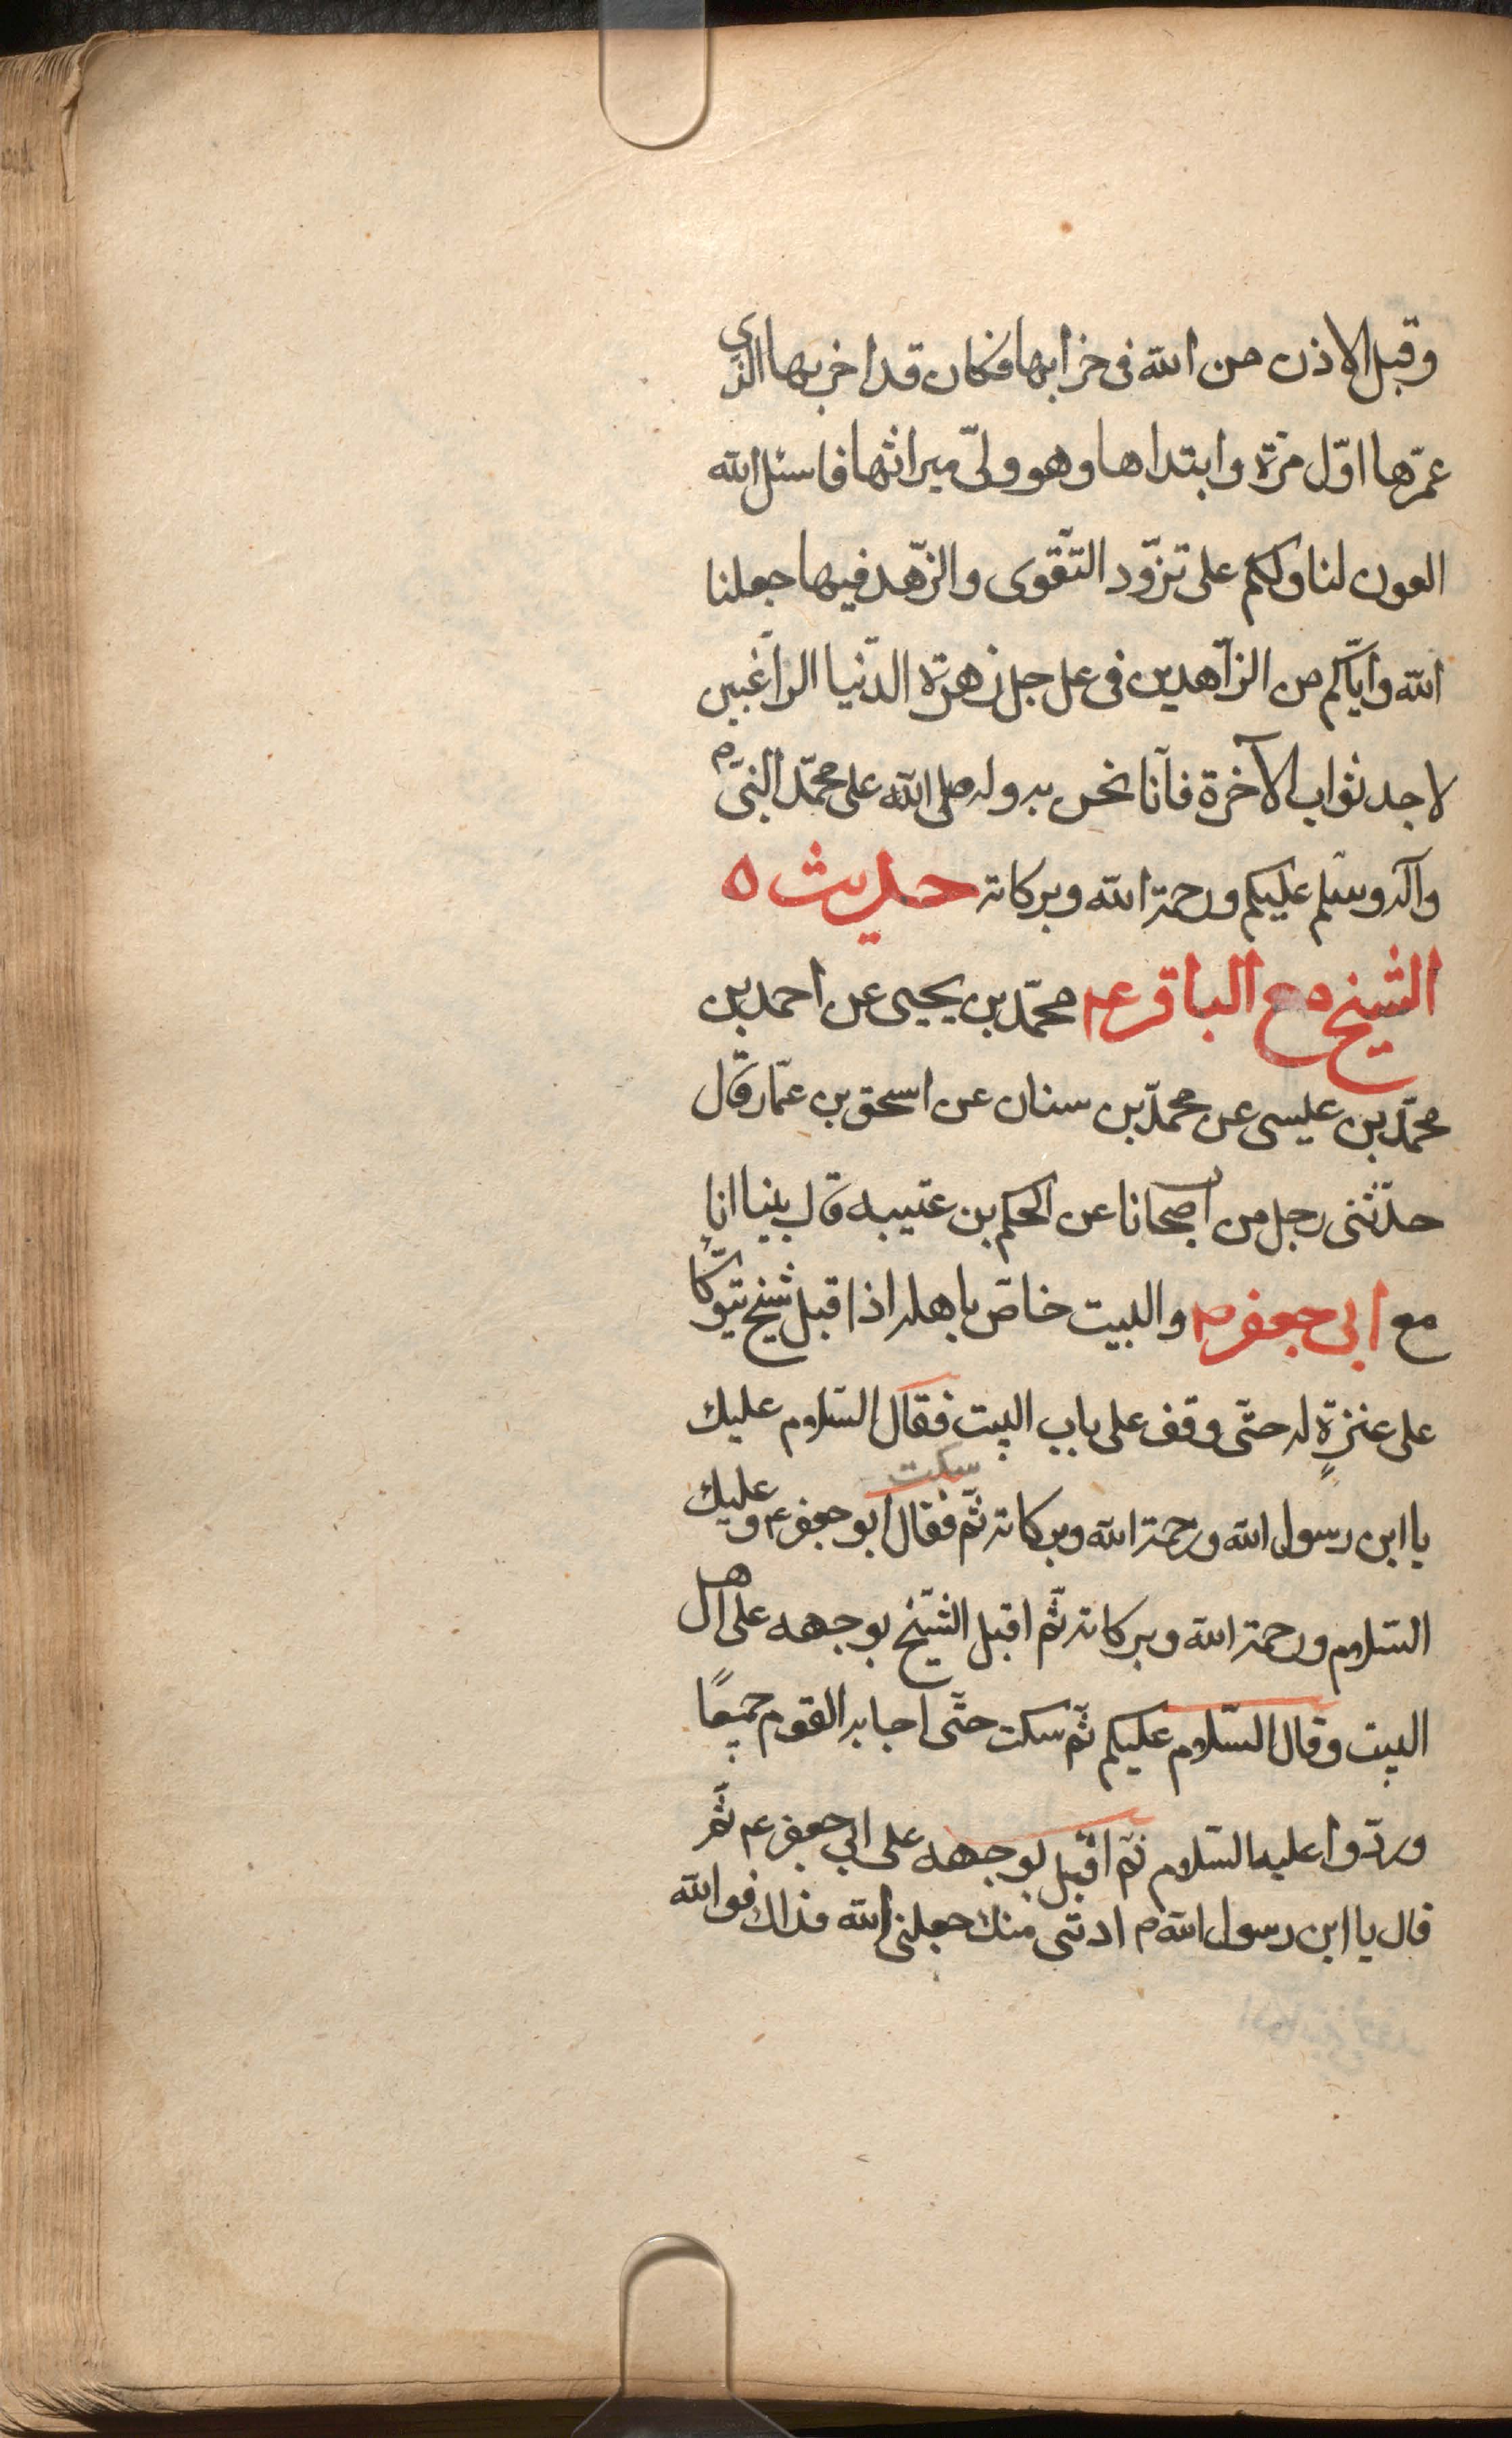 وقبل الاذن من الله فى خرابها فكان قد اخربها الذى
عمّرها اوّل مرّة وابتداها وهو ولىّ ميراثها فاسئل الله
العون لنا ولكم على تزوّد التّقوى والزّهد فيها جعلنا
الله وايّاكم من الزّاهدين فى عاجل زهرة الدّنيا الرّاغبين
لاجل ثواب الآخرة فانّا نحن به وله صلى الله على محمّد النبىّ م
وآله وسلّم عليكم ورحمة الله وبركاته حديث ه
الشيخ مع الباقر ع م محمّد بن يحيى عن احمد بن
محمّد بن عيسى عن محمّد بن سنان عن اسحق بن عمّار قال
حدّثنى رجل من اصحابنا عن الحكم بن عتيبه قال بينا انا
مع ابى جعفر م والبيت خاصّ باهله اذ اقبل شيخ يتوكّأ
على عنزةٍ له حتّى وقف على باب البيت فقال السّلام عليك
يا ابن رسول الله ورحمة الله وبركاته ثمّ سكت فقال ابو جعفر ع م وعليك
السّلام ورحمة الله وبركاته ثمّ اقبل الشّيخ بوجهه على اهل
البيت وقال السّلام عليكم ثمّ سكت حتّى اجابه القوم جميعًا
وردّوا عليه السّلام ثمّ اقبل بوجهه على ابى جعفر ع م ثمّ
قال يا ابن رسول الله م ادننى منك جعلنى الله فداك فوالله